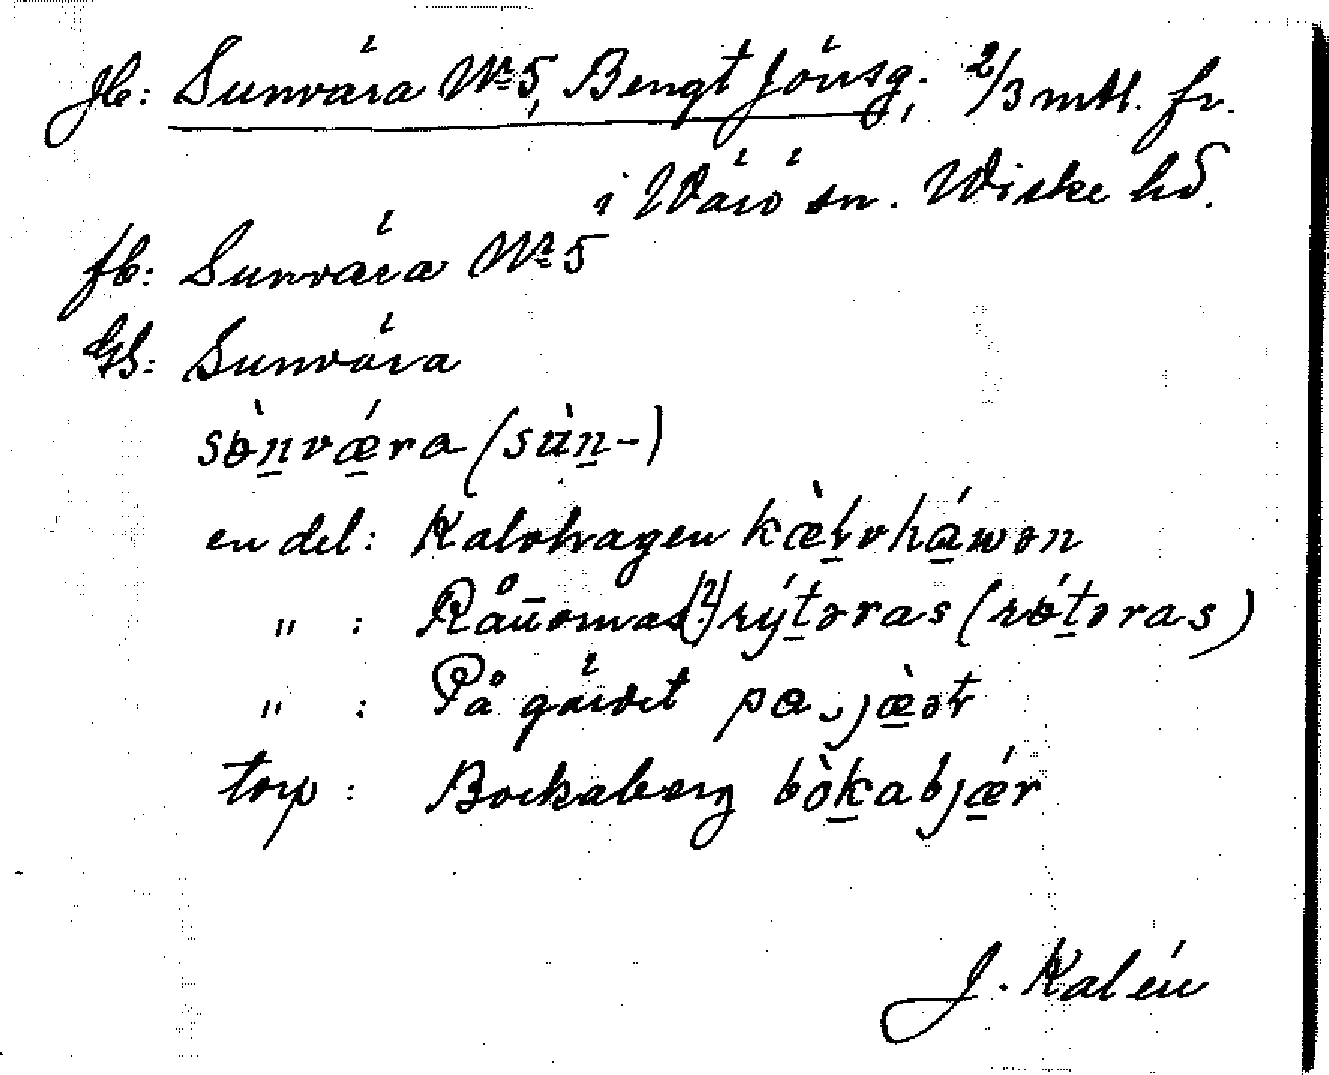 Jb: Sunvära Nr 5, Bengt Jönsg; 2/3 mtl. fr.
i Värö sn. Wiske hd.
fb: Sunvära Nr 5
Gs: Sunvära
sònvǽra (sùn-)
en del: Kalvhagen kæ̀lvháwən
" : (?) rýtəras (rǿtəras)
" : På gärdet pa jæ̀ət
torp: Bockaberg bòkabjǽr
J. Kalén